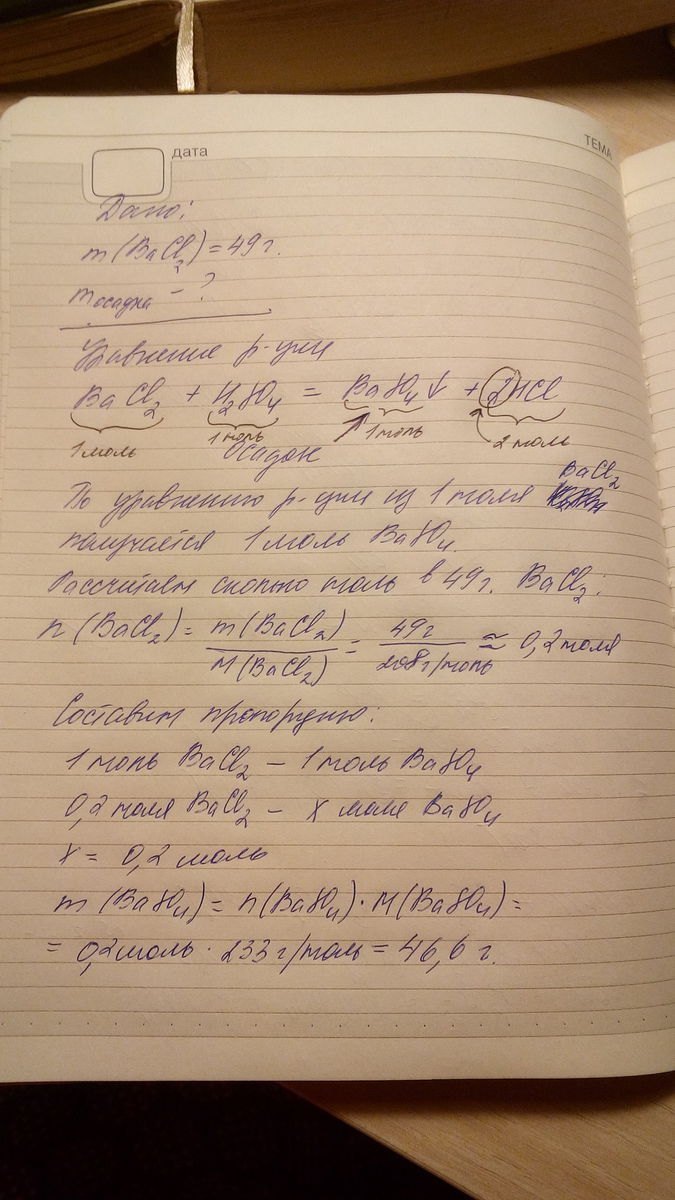 дата
ТЕМА
Дано:
m (BaCl₂) = 49 г.
m осадка - ?
Уравнение р-ции
BaCl₂ + H₂SO₄ = BaSO₄↓ + 2HCl
1 моль 1 моль 1 моль 2 моль
Осадок
По уравнению р-ции из 1 моля BaCl₂
получается 1 моль BaSO₄.
Рассчитаем сколько моль в 49 г. BaCl₂:
n (BaCl₂) = m (BaCl₂) / M (BaCl₂) = 49 г / 208 г/моль ≈ 0,2 моля
Составим пропорцию:
1 моль BaCl₂ – 1 моль BaSO₄
0,2 моля BaCl₂ – x моля BaSO₄
x = 0,2 моль
m (BaSO₄) = n (BaSO₄) · M (BaSO₄) =
= 0,2 моль · 233 г/моль = 46,6 г.